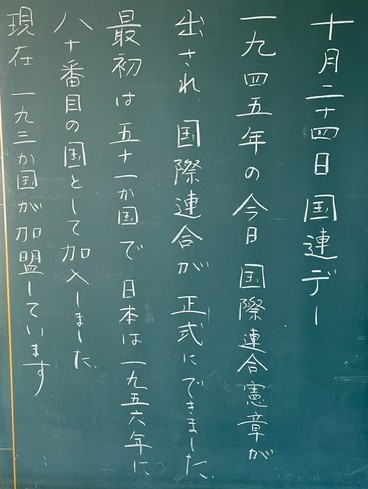 十月二十四日 国連デー
一九四五年の今日 国際連合憲章が
出され、国際連合が正式にできました。
最初は五十一か国で 日本は一九五六年に
八十番目の国として加入しました。
現在 一九三か国が加盟しています